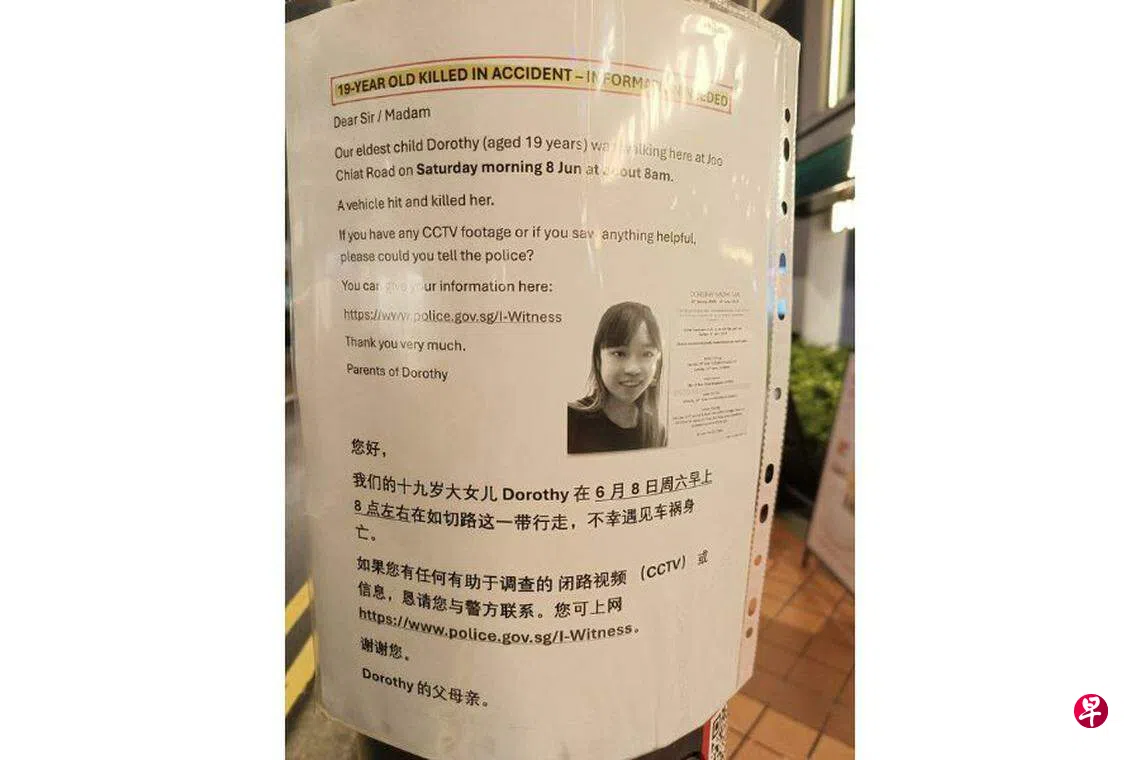 19-YEAR OLD KILLED IN ACCIDENT – INFORMATION NEEDED
Dear Sir / Madam
Our eldest child Dorothy (aged 19 years) was walking here at Joo
Chiat Road on Saturday morning 8 Jun at about 8am.
A vehicle hit and killed her.
If you have any CCTV footage or if you saw anything helpful,
please could you tell the police?
You can give your information here:
https://www.police.gov.sg/I-Witness
Thank you very much.
Parents of Dorothy
您好，
我们的十九岁大女儿 Dorothy 在 6 月 8 日周六早上
8 点左右在如切路这一带行走，不幸遇见车祸身
亡。
如果您有任何有助于调查的 闭路视频 （CCTV）或
信息，恳请您与警方联系。您可上网
https://www.police.gov.sg/I-Witness。
谢谢您。
Dorothy 的父母亲。
早